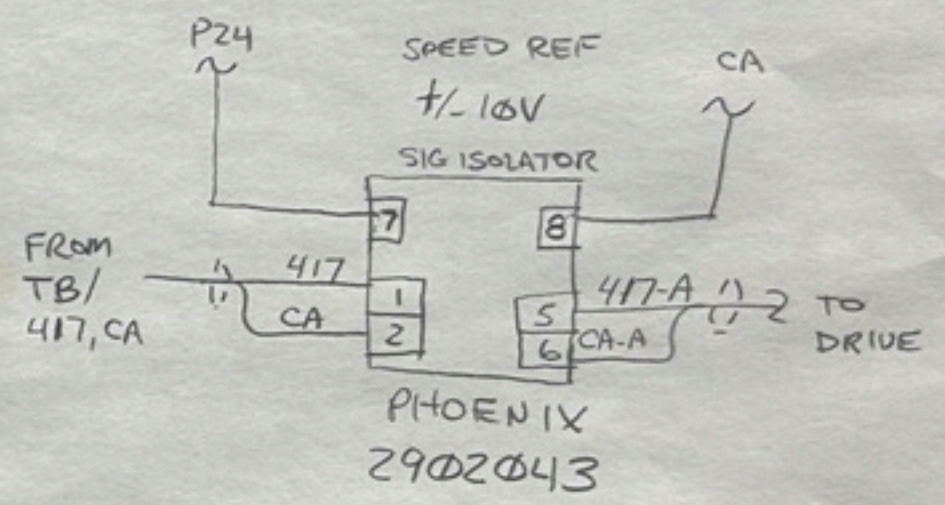 P24
SPEED REF
+/- 10V
CA
SIG ISOLATOR
7
8
FROM
TB/
417, CA
417
CA
1
2
5
6
417-A
CA-A
TO
DRIVE
PHOENIX
2902043